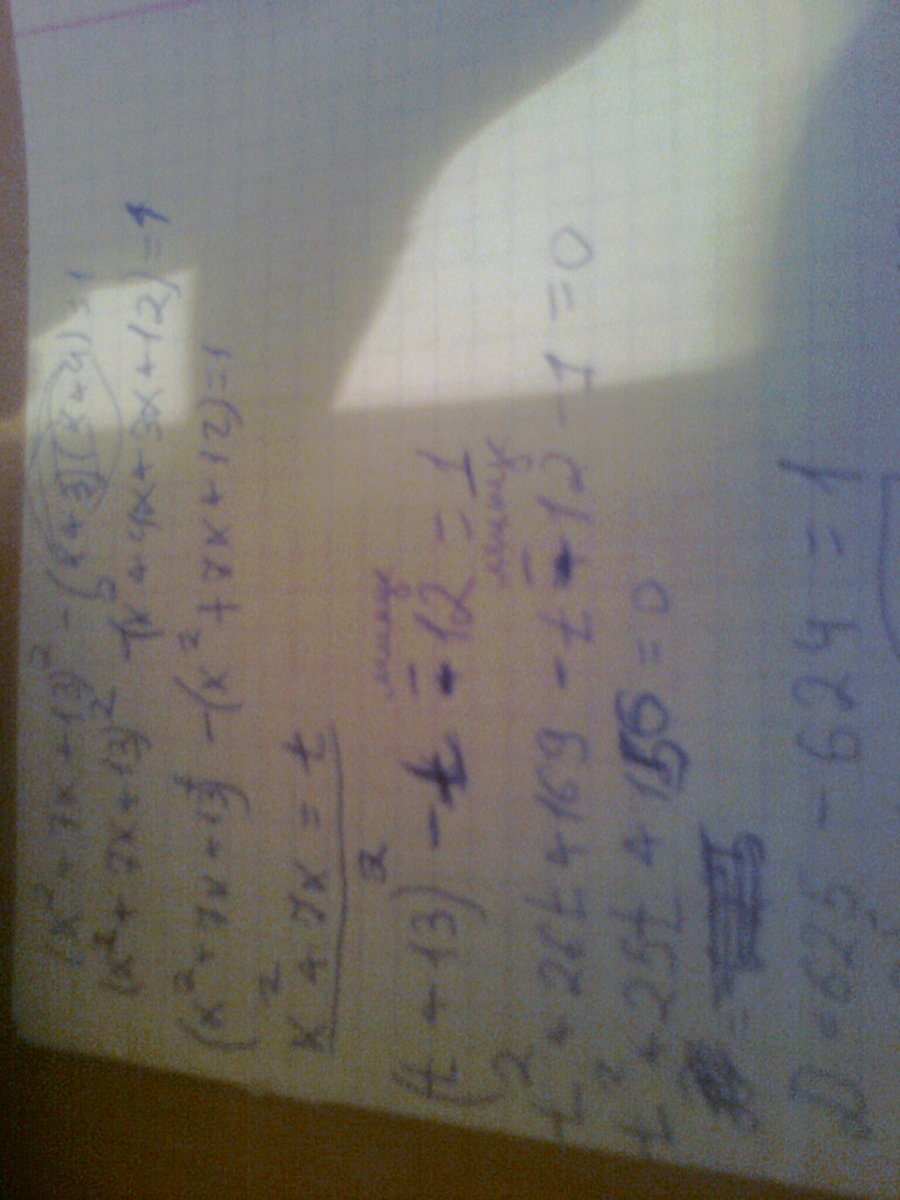 (x²+7x+13)² - (x+3)(x+4) = 1
(x²+7x+13)² - (x²+4x+3x+12) = 1
(x²+7x+13)² - (x²+7x+12) = 1
x²+7x = t
минус
(t+13)² - t - 12 = 1
минус
t²+26t+169 - t - 12 - 1 = 0
t²+25t+156 = 0
D = 625 - 624 = 1